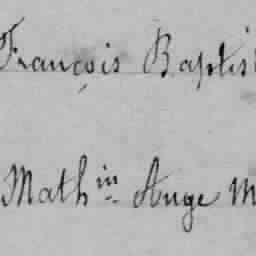 François Baptis
Math in Ange M